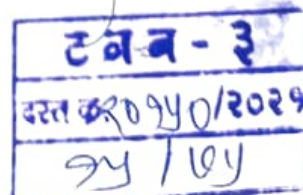 टनन - ३
दस्त क्र२०१५०/२०२१
१५ / ७५